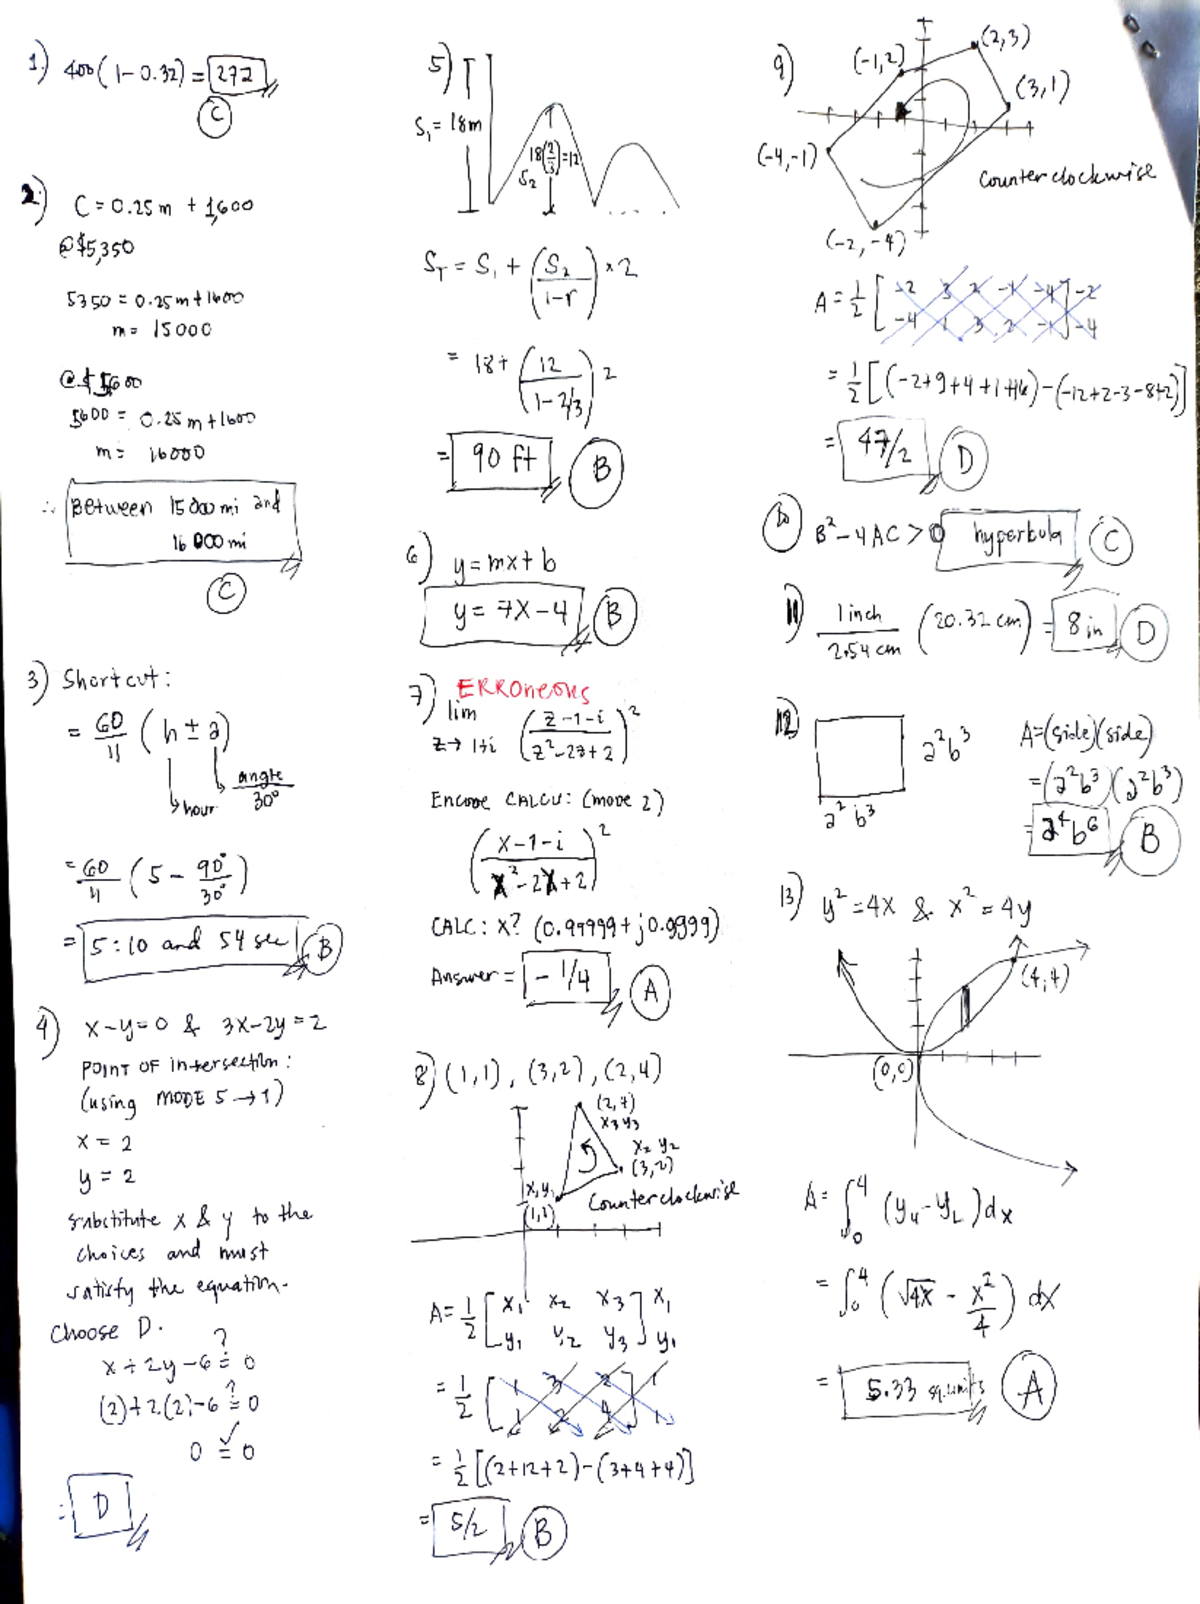 1.) 400(1-0.32) = 272
C
2.) C = 0.25m + 1,600
@ $5,350
5350 = 0.25m + 1600
m = 15000
@ $ 5,600
5600 = 0.25m + 1600
m = 16000
∴ Between 15000 mi and
16 000 mi
C
3) Shortcut:
= 60/11 (h ± a)
hour
angle/30°
= 60/11 (5 - 90°/30°)
= 5:10 and 54 sec B
4) x-y=0 & 3x-2y=2
POINT OF intersection:
(using MODE 5→1)
x = 2
y = 2
substitute x & y to the
choices and must
satisfy the equation.
Choose D.
x + 2y - 6 ≟ 0
(2)+2(2)-6 ≟ 0
0 = 0 ✓
= D
5)
S₁ = 18m
18(2/3)=12
S₂
S_T = S₁ + (S₂/(1-r)) × 2
= 18 + (12/(1-2/3)) 2
= 90 ft B
6) y = mx + b
y = 7x-4 B
7) ERRONEOUS
lim z→1+i ((z-1-i)/(z²-2z+2))²
Encode CALCU: (mode 2)
((x-1-i)/(x²-2x+2))²
CALC: x? (0.99999+j0.9999)
Answer = -1/4 A
8) (1,1), (3,2), (2,4)
(2,4)
x₃ y₃
x₂ y₂
(3,2)
x₁ y₁
(1,1)
Counterclockwise
A = 1/2 [x₁ x₂ x₃] x₁
[y₁ y₂ y₃] y₁
= 1/2 [1 3 2] 1
[1 2 4] 1
= 1/2 [(2+12+2)-(3+4+4)]
= 5/2 B
9)
(-1,2)
(2,3)
(3,1)
(-4,-1)
(-2,-4)
Counter clockwise
A = 1/2 [-2 3 2 -1 -4] -2
[-4 1 3 2 -1] -4
= 1/2 [(-2+9+4+1+16)-(-12+2-3-8+2)]
= 47/2 D
10 B²-4AC > 0 hyperbola C
11) 1 inch/2.54 cm (20.32 cm) = 8 in D
12)
a²b³
a²b³
A=(side)(side)
=(a²b³)(a²b³)
= a⁴b⁶ B
13) y²=4x & x²=4y
(4,4)
(0,0)
A= ∫₀⁴ (y_u - y_L) dx
= ∫₀⁴ (√4x - x²/4) dx
= 5.33 sq.units A